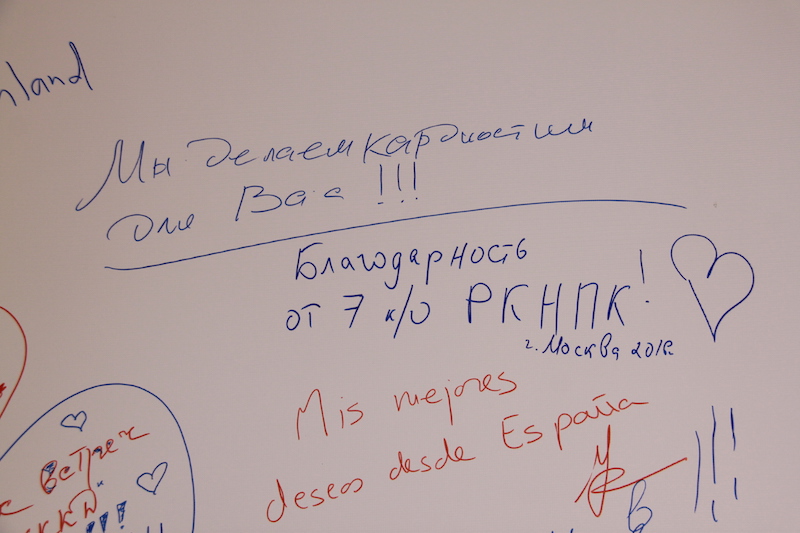 Мы делаем кардиостим
для Вас !!!
Благодарность
от 7 к/о РКНПК!
г. Москва
Mis mejores
deseos desde España
встреч
в !!!